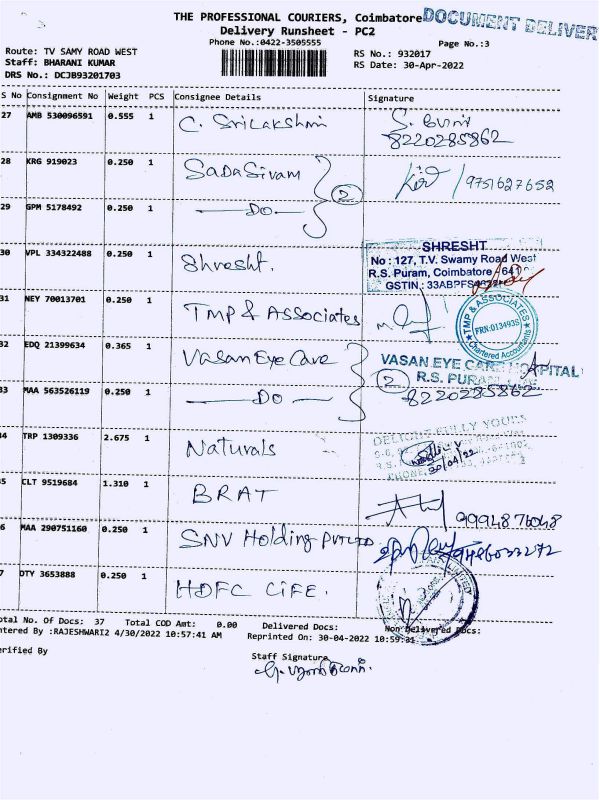 THE PROFESSIONAL COURIERS, Coimbatore
DOCUMENT DELIVER
Delivery Runsheet - PC2
Phone No.:0422-3505555
Page No.:3
Route: TV SAMY ROAD WEST
RS No.: 932017
Staff: BHARANI KUMAR
RS Date: 30-Apr-2022
DRS No.: DCJB93201703
S No Consignment No Weight PCS Consignee Details Signature
27 AMB 530096591 0.555 1 C. SriLakshmi
8220285862
28 KRG 919023 0.250 1 SadaSivam 2 9751627652
29 GPM 5178492 0.250 1 — Do —
30 VPL 334322488 0.250 1 Shresht.
SHRESHT
No : 127, T.V. Swamy Road West
R.S. Puram, Coimbatore
GSTIN : 33ABPFS
31 NEY 70013701 0.250 1 TMP & Associates
TMP & ASSOCIATES
FRN:013493S
Chartered Accountants
32 EDQ 21399634 0.365 1 Vasan Eye Care
VASAN EYE CARE HOSPITAL
2 R.S. PURAM
33 MAA 563526119 0.250 1 — Do — 8220285862
34 TRP 1309336 2.675 1 Naturals
DELIGHTFULLY YOURS
30/04/22
35 CLT 9519684 1.310 1 BRAT 9994876048
36 MAA 290751160 0.250 1 SNV Holding PVT LTD
37 DTY 3653888 0.250 1 HDFC LiFE.
otal No. Of Docs: 37 Total COD Amt: 0.00 Delivered Docs: Non Delivered Docs:
ntered By :RAJESHWARI2 4/30/2022 10:57:41 AM Reprinted On: 30-04-2022 10:59:31
erified By
Staff Signature